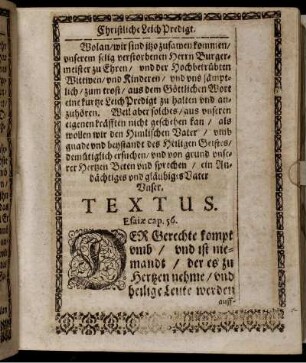 Christliche Leich Predigt.
Wolan/ wir sind itzo zusamen kommen/
unserem selig verstorbenen Herrn Burge-
meister zu Ehren/ und der Hochbetrübten
Wittwen/ und Kinderen/ und uns sämpt-
lich/ zum trost/ aus dem Göttlichen Wort
eine kurtze Leich Predigt zu halten und an-
zuhören. Weil aber solches/ aus unseren
eigenen kräfften nicht geschehen kan/ als
wollen wir den Himlischen Vater/ umb
gnade und beystande des Heiligen Geistes/
demütiglich ersuchen/ und von grund unse-
rer Hertzen Beten und sprechen/ ein An-
dächtiges und gläubiges Vater
Unser.
TEXTUS.
Esaiæ cap. 56.
DER Gerechte kompt
umb/ und ist nie-
mandt/ der es zu
Hertzen nehme/ und
heilige Leute werden
auff-